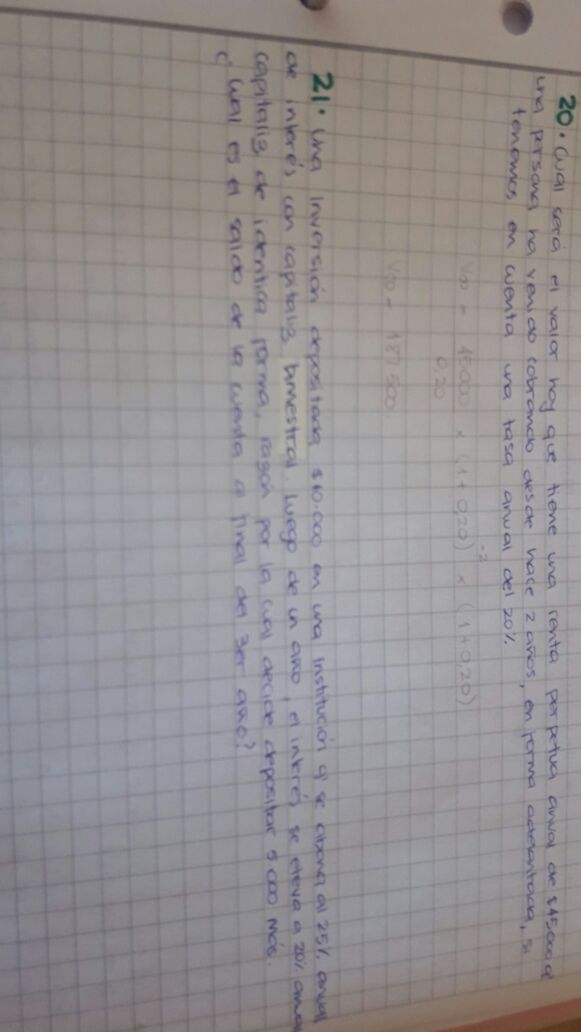 20. Cual será el valor hoy que tiene una renta perpetua anual de $45.000 q'
una persona ha venido cobrando desde hace 2 años, en forma adelantada, si
tenemos en cuenta una tasa anual del 20%.
V∞ = 45000 × (1+0,20)⁻² × (1+0,20)
0,20
V∞ = 187.500.
21. Una inversión depositada $10.000 en una institución q' se abona al 25% anual
de interés con capitaliz. bimestral. Luego de un año, el interés se eleva a 20% anual
capitaliz. de identica forma, razón por la cual decide depositar 5.000 más.
¿Cual es el saldo de la cuenta a final del 3er año?